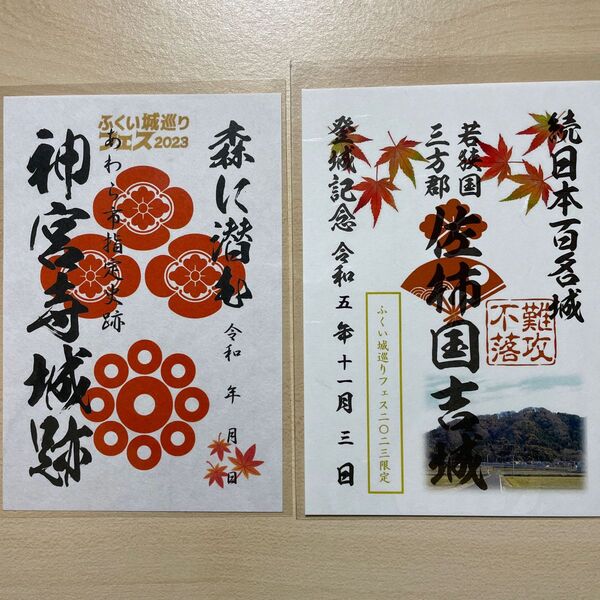 ふくい城巡り
フェス2023
森に潜む
あわら市指定史跡
神宮寺城跡
令和 年 月 日
続日本百名城
難攻不落
若狭国
三方郡
佐柿国吉城
登城記念 令和五年十一月三日
ふくい城巡りフェス二〇二三限定